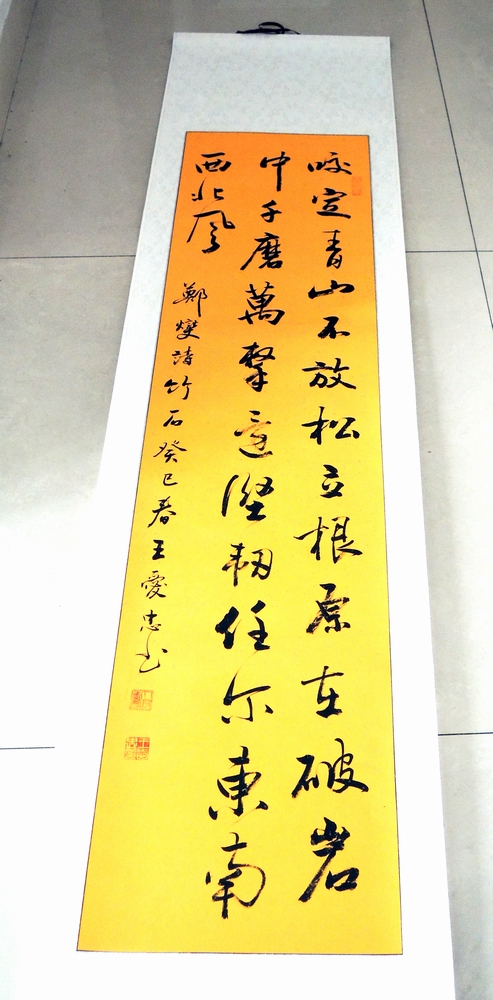 咬定青山不放松立根原在破岩
中千磨萬擊還堅韌任尔東南
西北风
鄭燮詩竹石癸巳春王愛忠书